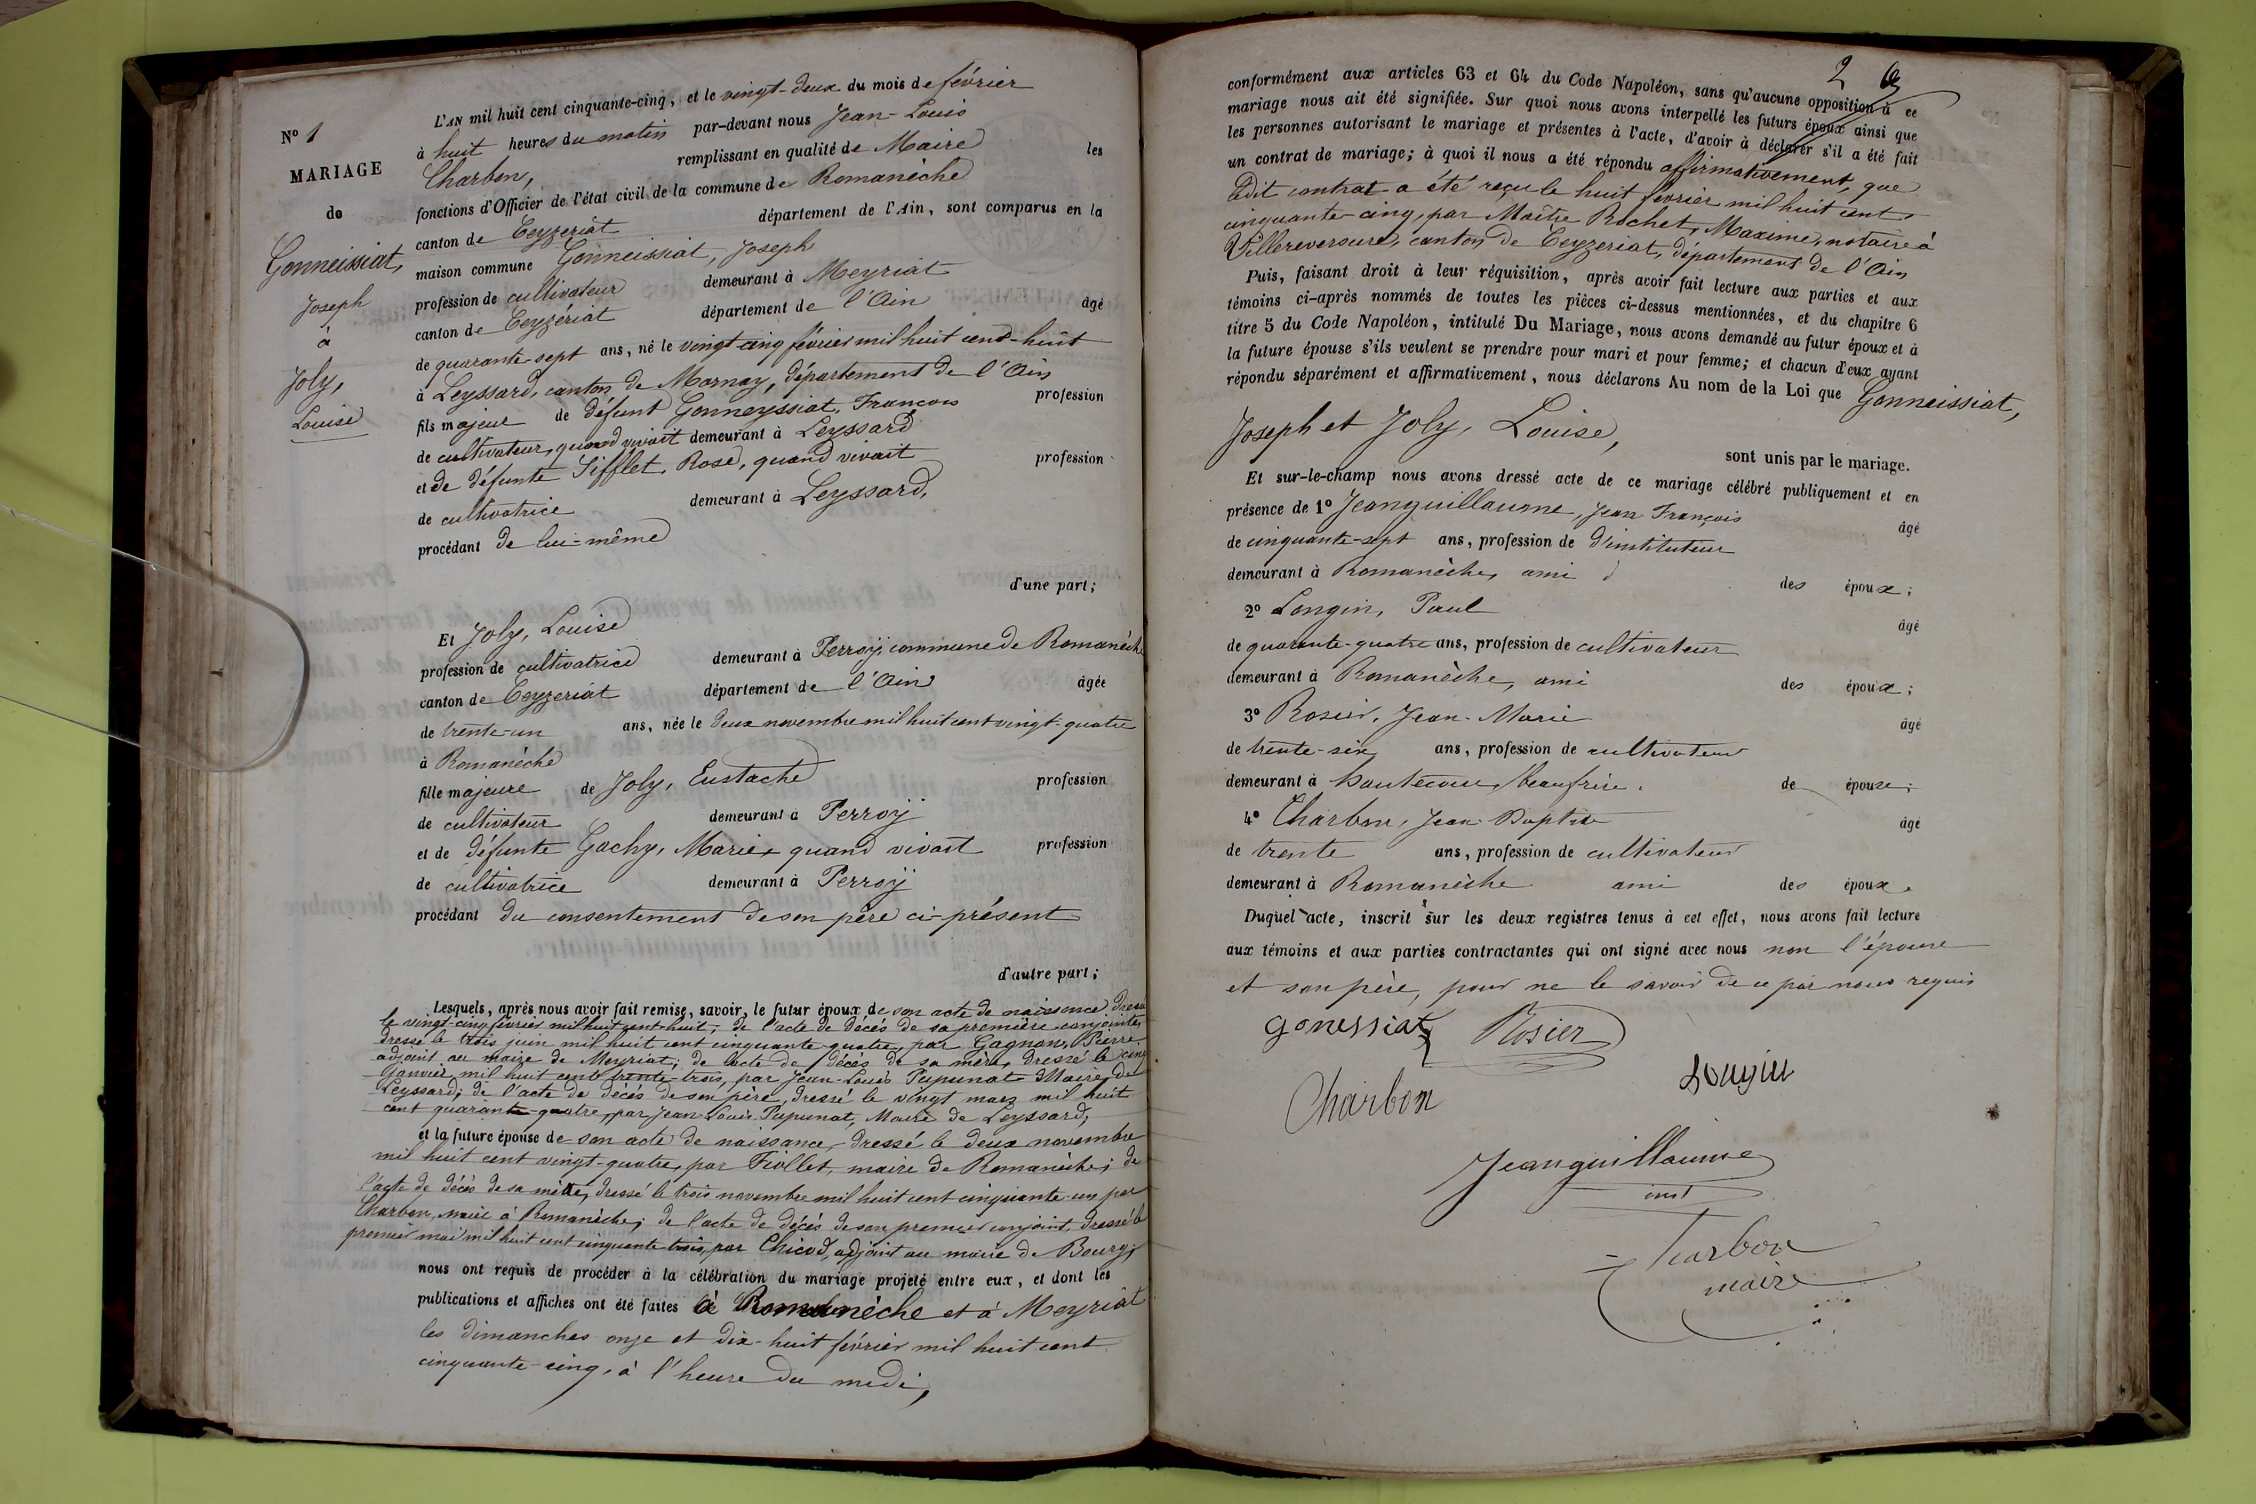 N° 1
MARIAGE
de
Gonneissiat,
Joseph
à
Joly,
Louise
L'AN mil huit cent cinquante-cinq, et le vingt-deux du mois de février
à huit heures du matin par-devant nous Jean-Louis
Charbon, remplissant en qualité de Maire les
fonctions d'Officier de l'état civil de la commune de Romanèche
canton de Ceyzeriat département de l'Ain, sont comparus en la
maison commune Gonneissiat, Joseph
profession de cultivateur demeurant à Meyriat
canton de Ceyzériat département de l'Ain âgé
de quarante-sept ans, né le vingt-cinq février mil huit cent-huit
à Leyssard, canton de Mornay, département de l'Ain
fils majeur de défunt Gonneyssiat, François profession
de cultivateur, quand vivait demeurant à Leyssard
et de défunte Sifflet, Rose, quand vivait profession
de cultivatrice demeurant à Leyssard,
procédant de lui-même
d'une part;
Et Joly, Louise
profession de cultivatrice demeurant à Perroÿ commune de Romanèche
canton de Ceyzeriat département de l'Ain âgée
de trente-un ans, née le deux novembre mil huit cent vingt-quatre
à Romanèche
fille majeure de Joly, Eustache profession
de cultivateur demeurant à Perroÿ
et de défunte Gachy, Marie, quand vivait profession
de cultivatrice demeurant à Perroÿ
procédant du consentement de son père ci-présent
d'autre part;
Lesquels, après nous avoir fait remise, savoir, le futur époux de son acte de naissance dressé
le vingt-cinq février mil huit cent huit; de l'acte de décès de sa première conjointe,
dressé le trois juin mil huit cent cinquante quatre, par Gagnon, Pierre
adjoint au maire de Meyriat; de l'acte de décès de sa mère, dressé le cinq
Janvier mil huit cent trente-trois, par Jean-Louis Pupunat Maire de
Leyssard; de l'acte de décès de son père, dressé le vingt mars mil huit
cent quarante-quatre, par Jean-Louis Pupunat, Maire de Leyssard;
et la future épouse de son acte de naissance, dressé le deux novembre
mil huit cent vingt-quatre, par Fiollet, maire de Romanèche; de
l'acte de décès de sa mère, dressé le trois novembre mil huit cent cinquante-un par
Charbon, maire à Romanèche; de l'acte de décès de son premier conjoint, dressé le
premier mai mil huit cent cinquante trois, par Chicod, adjoint au maire de Bourg;
nous ont requis de procéder à la célébration du mariage projeté entre eux, et dont les
publications et affiches ont été faites à Romanèche et à Meyriat
les dimanches onze et dix-huit février mil huit cent
cinquante-cinq, à l'heure du midi,
2
conformément aux articles 63 et 64 du Code Napoléon, sans qu'aucune opposition à ce
mariage nous ait été signifiée. Sur quoi nous avons interpellé les futurs époux ainsi que
les personnes autorisant le mariage et présentes à l'acte, d'avoir à déclarer s'il a été fait
un contrat de mariage; à quoi il nous a été répondu affirmativement, que
ledit contrat a été reçu le huit février mil huit cent
cinquante-cinq, par Maître Rochet, Maxime, notaire à
Villereversure, canton de Ceyzeriat, département de l'Ain
Puis, faisant droit à leur réquisition, après avoir fait lecture aux parties et aux
témoins ci-après nommés de toutes les pièces ci-dessus mentionnées, et du chapitre 6
titre 5 du Code Napoléon, intitulé Du Mariage, nous avons demandé au futur époux et à
la future épouse s'ils veulent se prendre pour mari et pour femme; et chacun d'eux ayant
répondu séparément et affirmativement, nous déclarons Au nom de la Loi que Gonneissiat,
Joseph et Joly, Louise,
sont unis par le mariage.
Et sur-le-champ nous avons dressé acte de ce mariage célébré publiquement et en
présence de 1° Jeanguillaume, Jean François âgé
de cinquante-sept ans, profession de d'instituteur
demeurant à Romanèche, ami des époux;
2° Longin, Paul âgé
de quarante-quatre ans, profession de cultivateur
demeurant à Romanèche, ami des époux;
3° Rosier, Jean-Marie âgé
de trente-six ans, profession de cultivateur
demeurant à hautecour, beaufrère. de épouse;
4° Charbon, Jean-Baptiste âgé
de trente ans, profession de cultivateur
demeurant à Romanèche ami des époux.
Duquel acte, inscrit sur les deux registres tenus à cet effet, nous avons fait lecture
aux témoins et aux parties contractantes qui ont signé avec nous non l'épouse
et son père, pour ne le savoir de ce par nous requis
gonessiat Rosier
Longin
Charbon
Jeanguillaume
inst
Charbon
maire